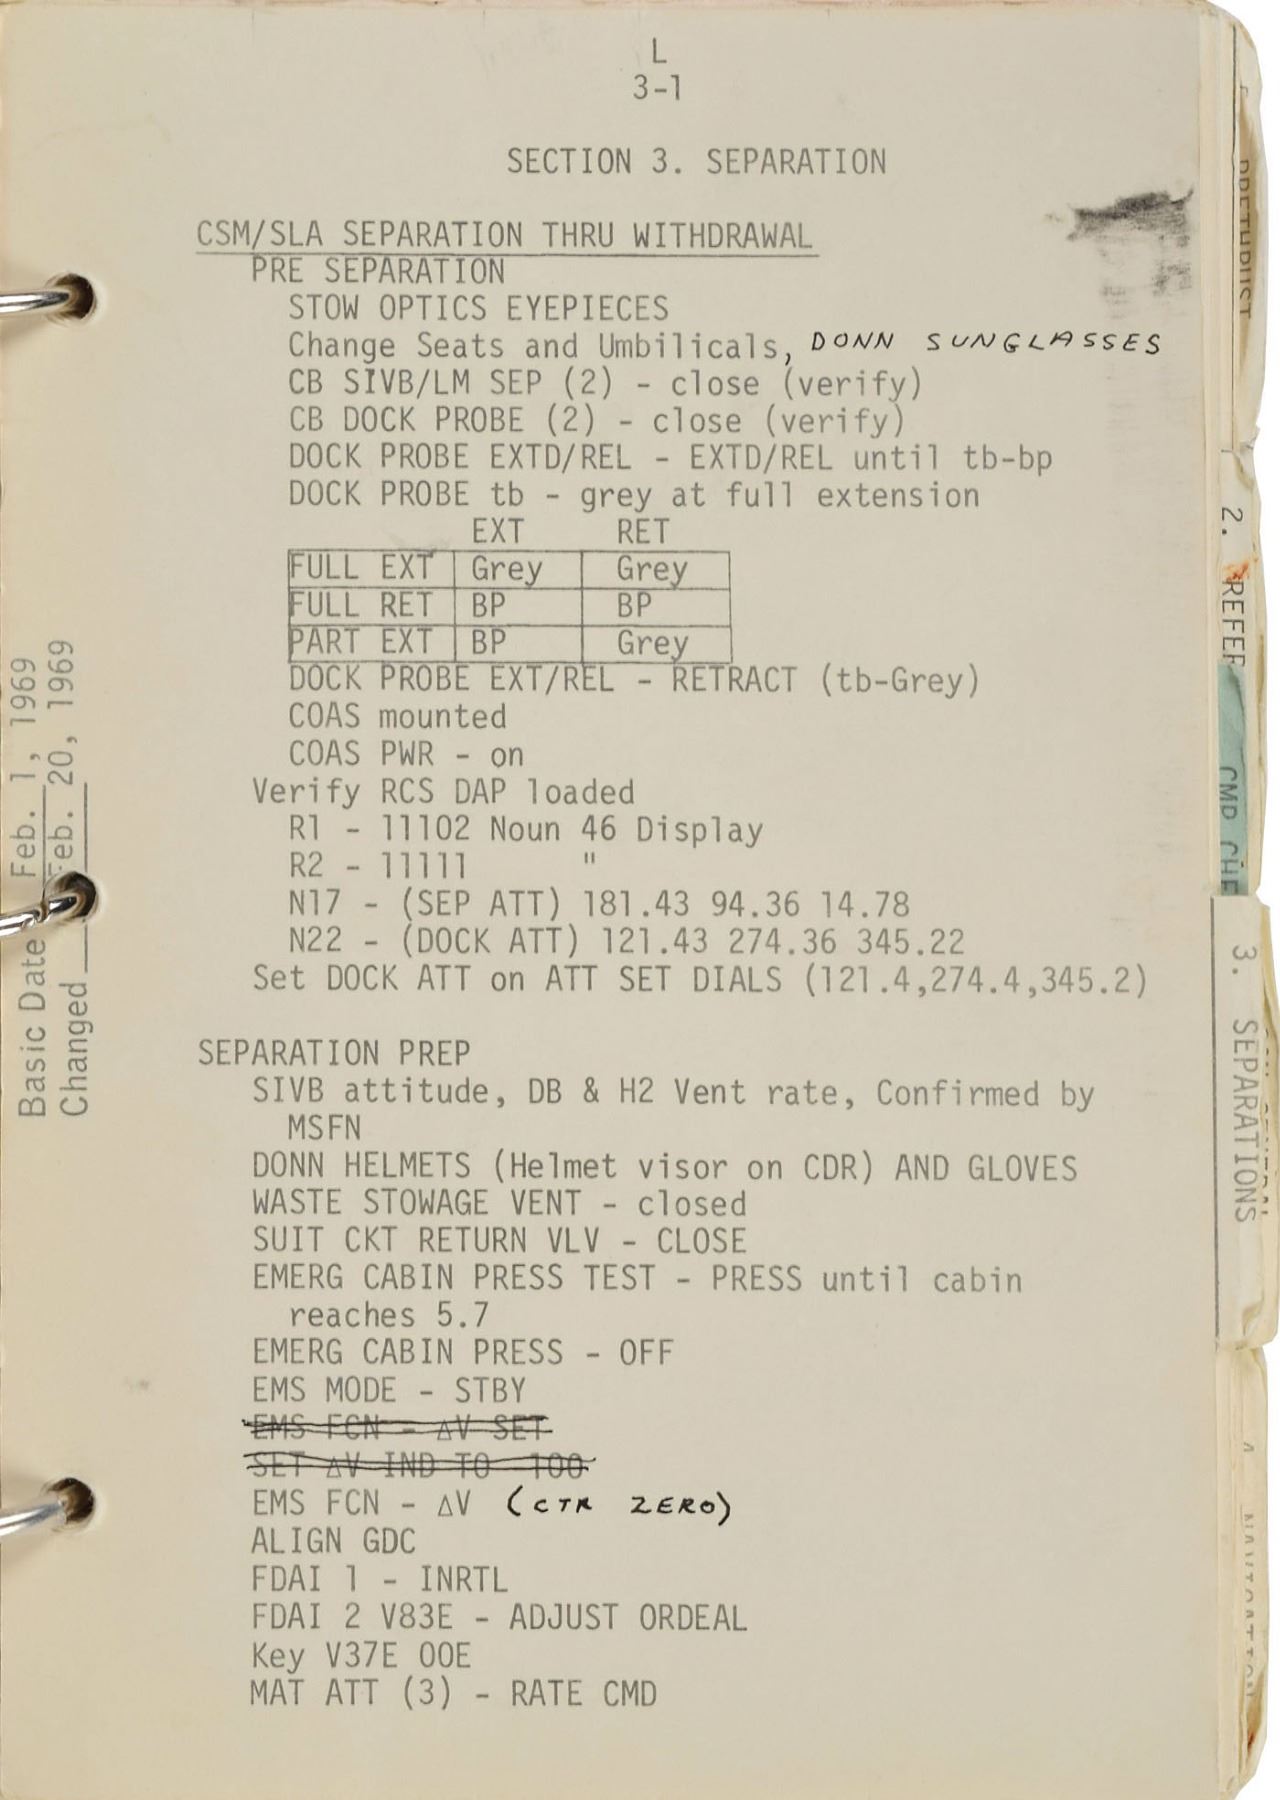 L
3-1
SECTION 3. SEPARATION
CSM/SLA SEPARATION THRU WITHDRAWAL
PRE SEPARATION
STOW OPTICS EYEPIECES
Change Seats and Umbilicals, DONN SUNGLASSES
CB SIVB/LM SEP (2) - close (verify)
CB DOCK PROBE (2) - close (verify)
DOCK PROBE EXTD/REL - EXTD/REL until tb-bp
DOCK PROBE tb - grey at full extension
EXT RET
FULL EXT Grey Grey
FULL RET BP BP
PART EXT BP Grey
DOCK PROBE EXT/REL - RETRACT (tb-Grey)
COAS mounted
COAS PWR - on
Verify RCS DAP loaded
R1 - 11102 Noun 46 Display
R2 - 11111 "
N17 - (SEP ATT) 181.43 94.36 14.78
N22 - (DOCK ATT) 121.43 274.36 345.22
Set DOCK ATT on ATT SET DIALS (121.4,274.4,345.2)
SEPARATION PREP
SIVB attitude, DB & H2 Vent rate, Confirmed by
MSFN
DONN HELMETS (Helmet visor on CDR) AND GLOVES
WASTE STOWAGE VENT - closed
SUIT CKT RETURN VLV - CLOSE
EMERG CABIN PRESS TEST - PRESS until cabin
reaches 5.7
EMERG CABIN PRESS - OFF
EMS MODE - STBY
EMS FCN - ΔV SET
SET ΔV IND TO 100
EMS FCN - ΔV (CTR ZERO)
ALIGN GDC
FDAI 1 - INRTL
FDAI 2 V83E - ADJUST ORDEAL
Key V37E 00E
MAT ATT (3) - RATE CMD
Basic Date Feb. 1, 1969
Changed Feb. 20, 1969
2. REFER
CMD CHE
3. SEPARATIONS